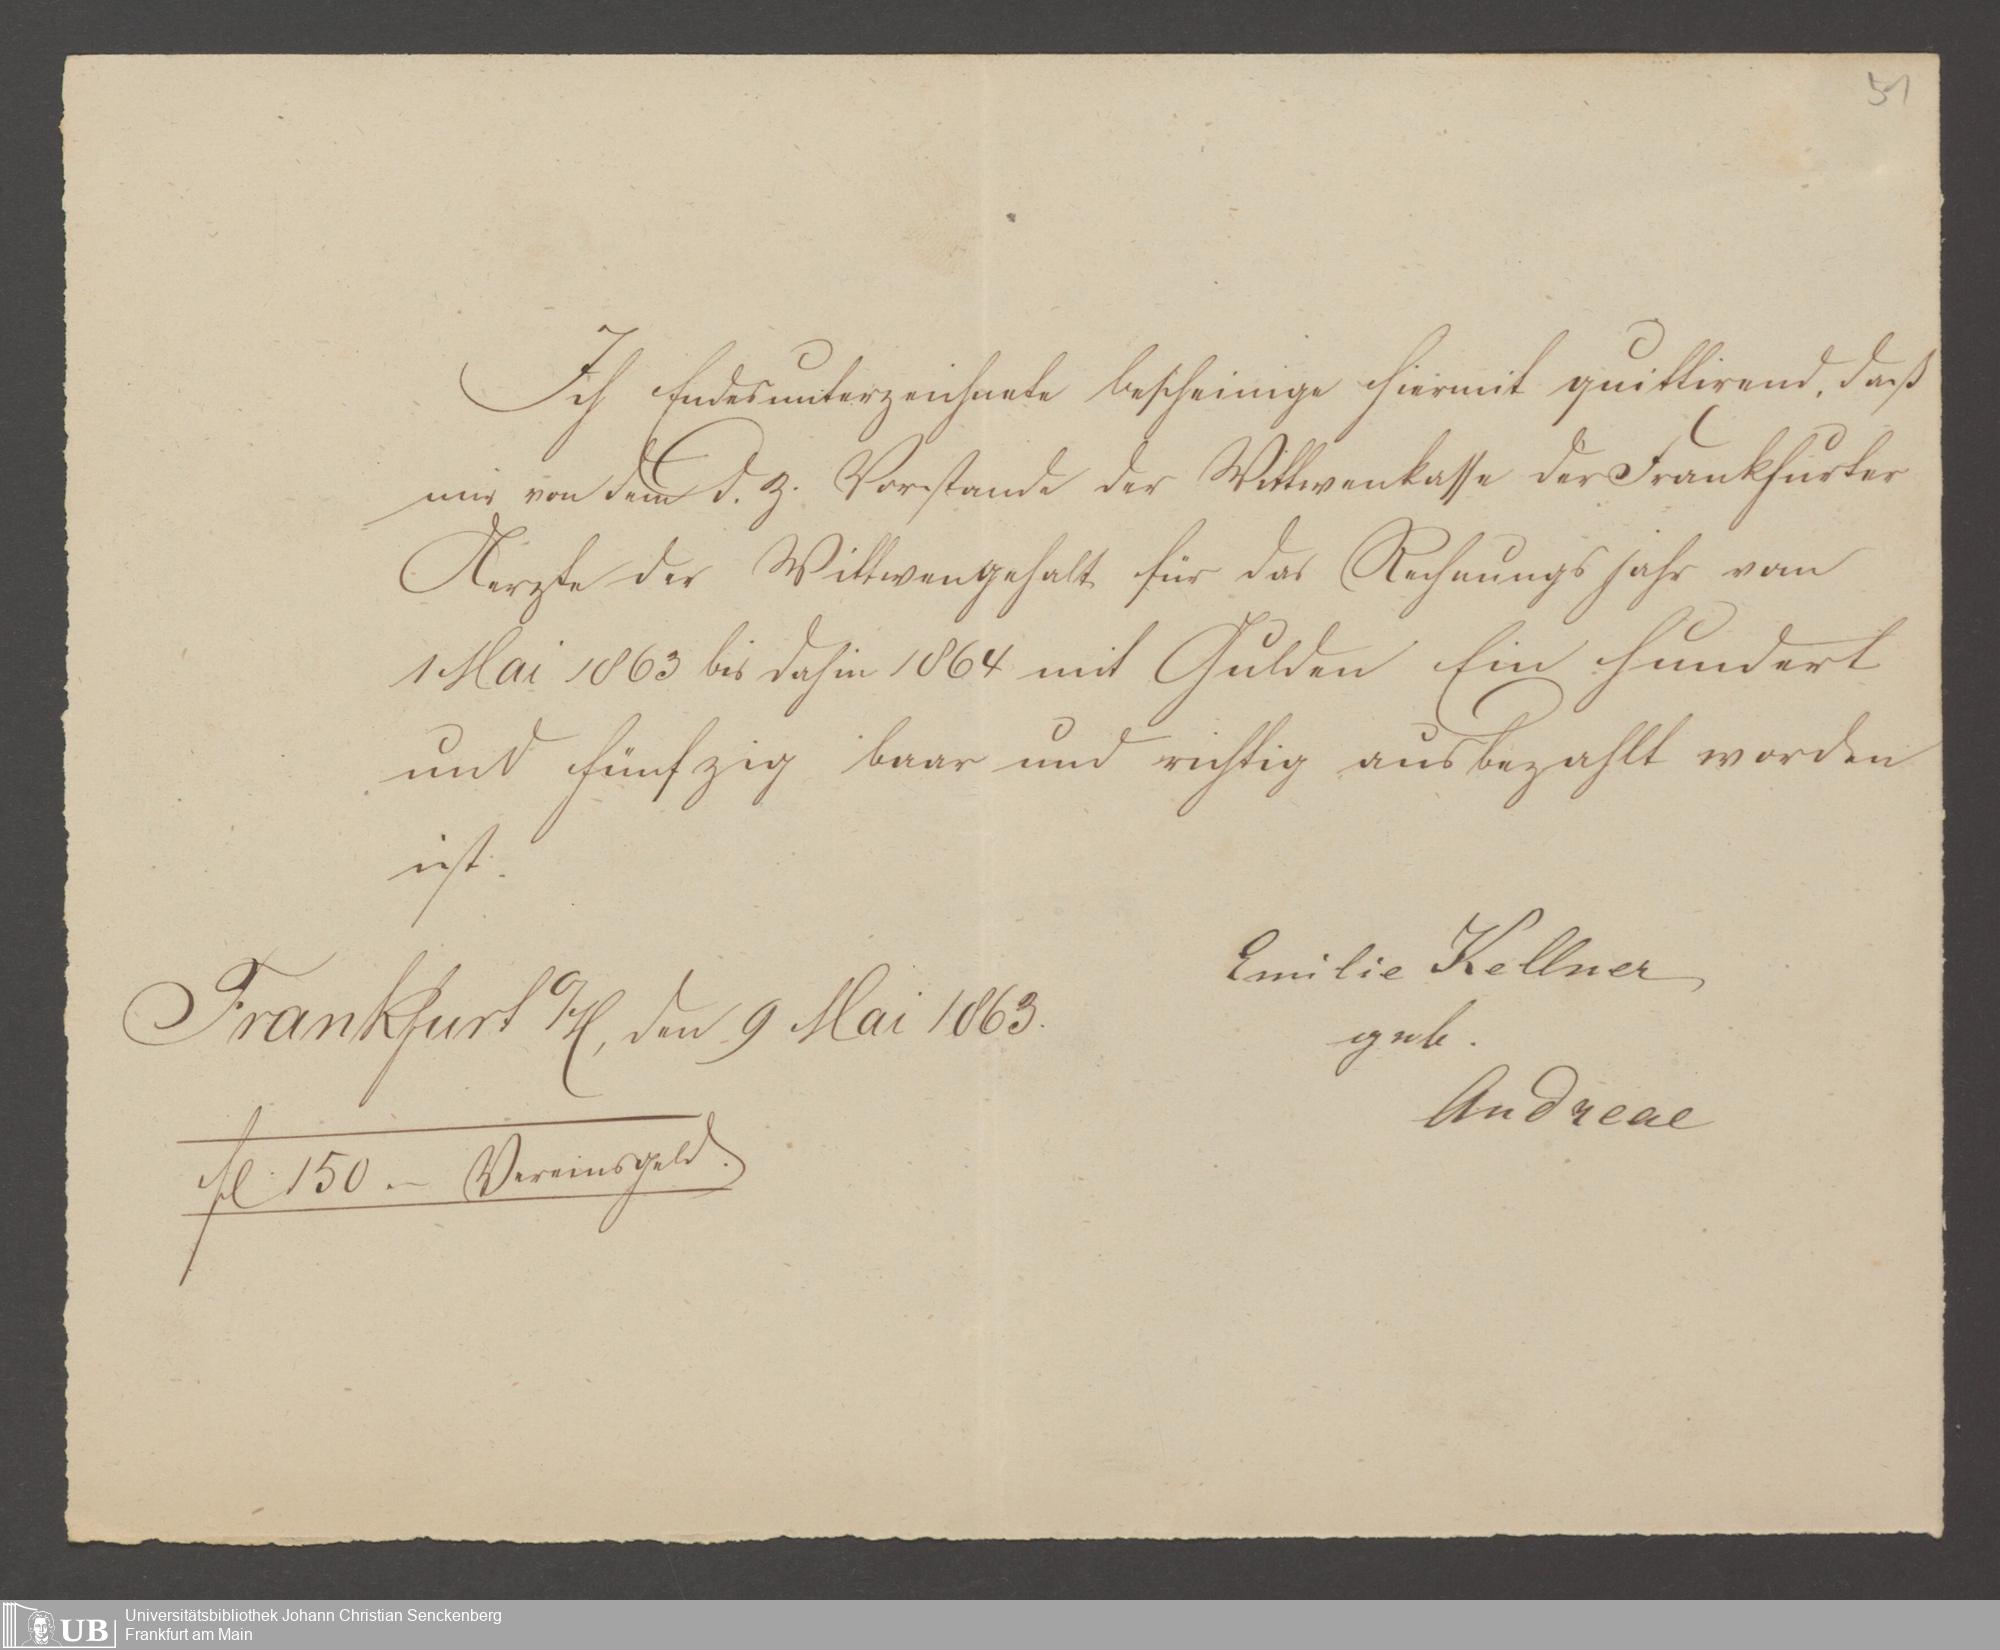 51
Ich Endesunterzeichnete bescheinige hiermit quittirend, daß
mir von dem d. Z. Vorstande der Wittwenkasse der Frankfurter
Aerzte der Wittwengehalt für das Rechnungsjahr vom
1 Mai 1863 bis dahin 1864 mit Gulden Ein hundert
und fünfzig baar und richtig ausbezahlt worden
ist.
Emilie Kellner
Frankfurt a/M, den 9 Mai 1863.
geb.
Andreae
fl. 150 – Vereinsgeld.
UB
Universitätsbibliothek Johann Christian Senckenberg
Frankfurt am Main